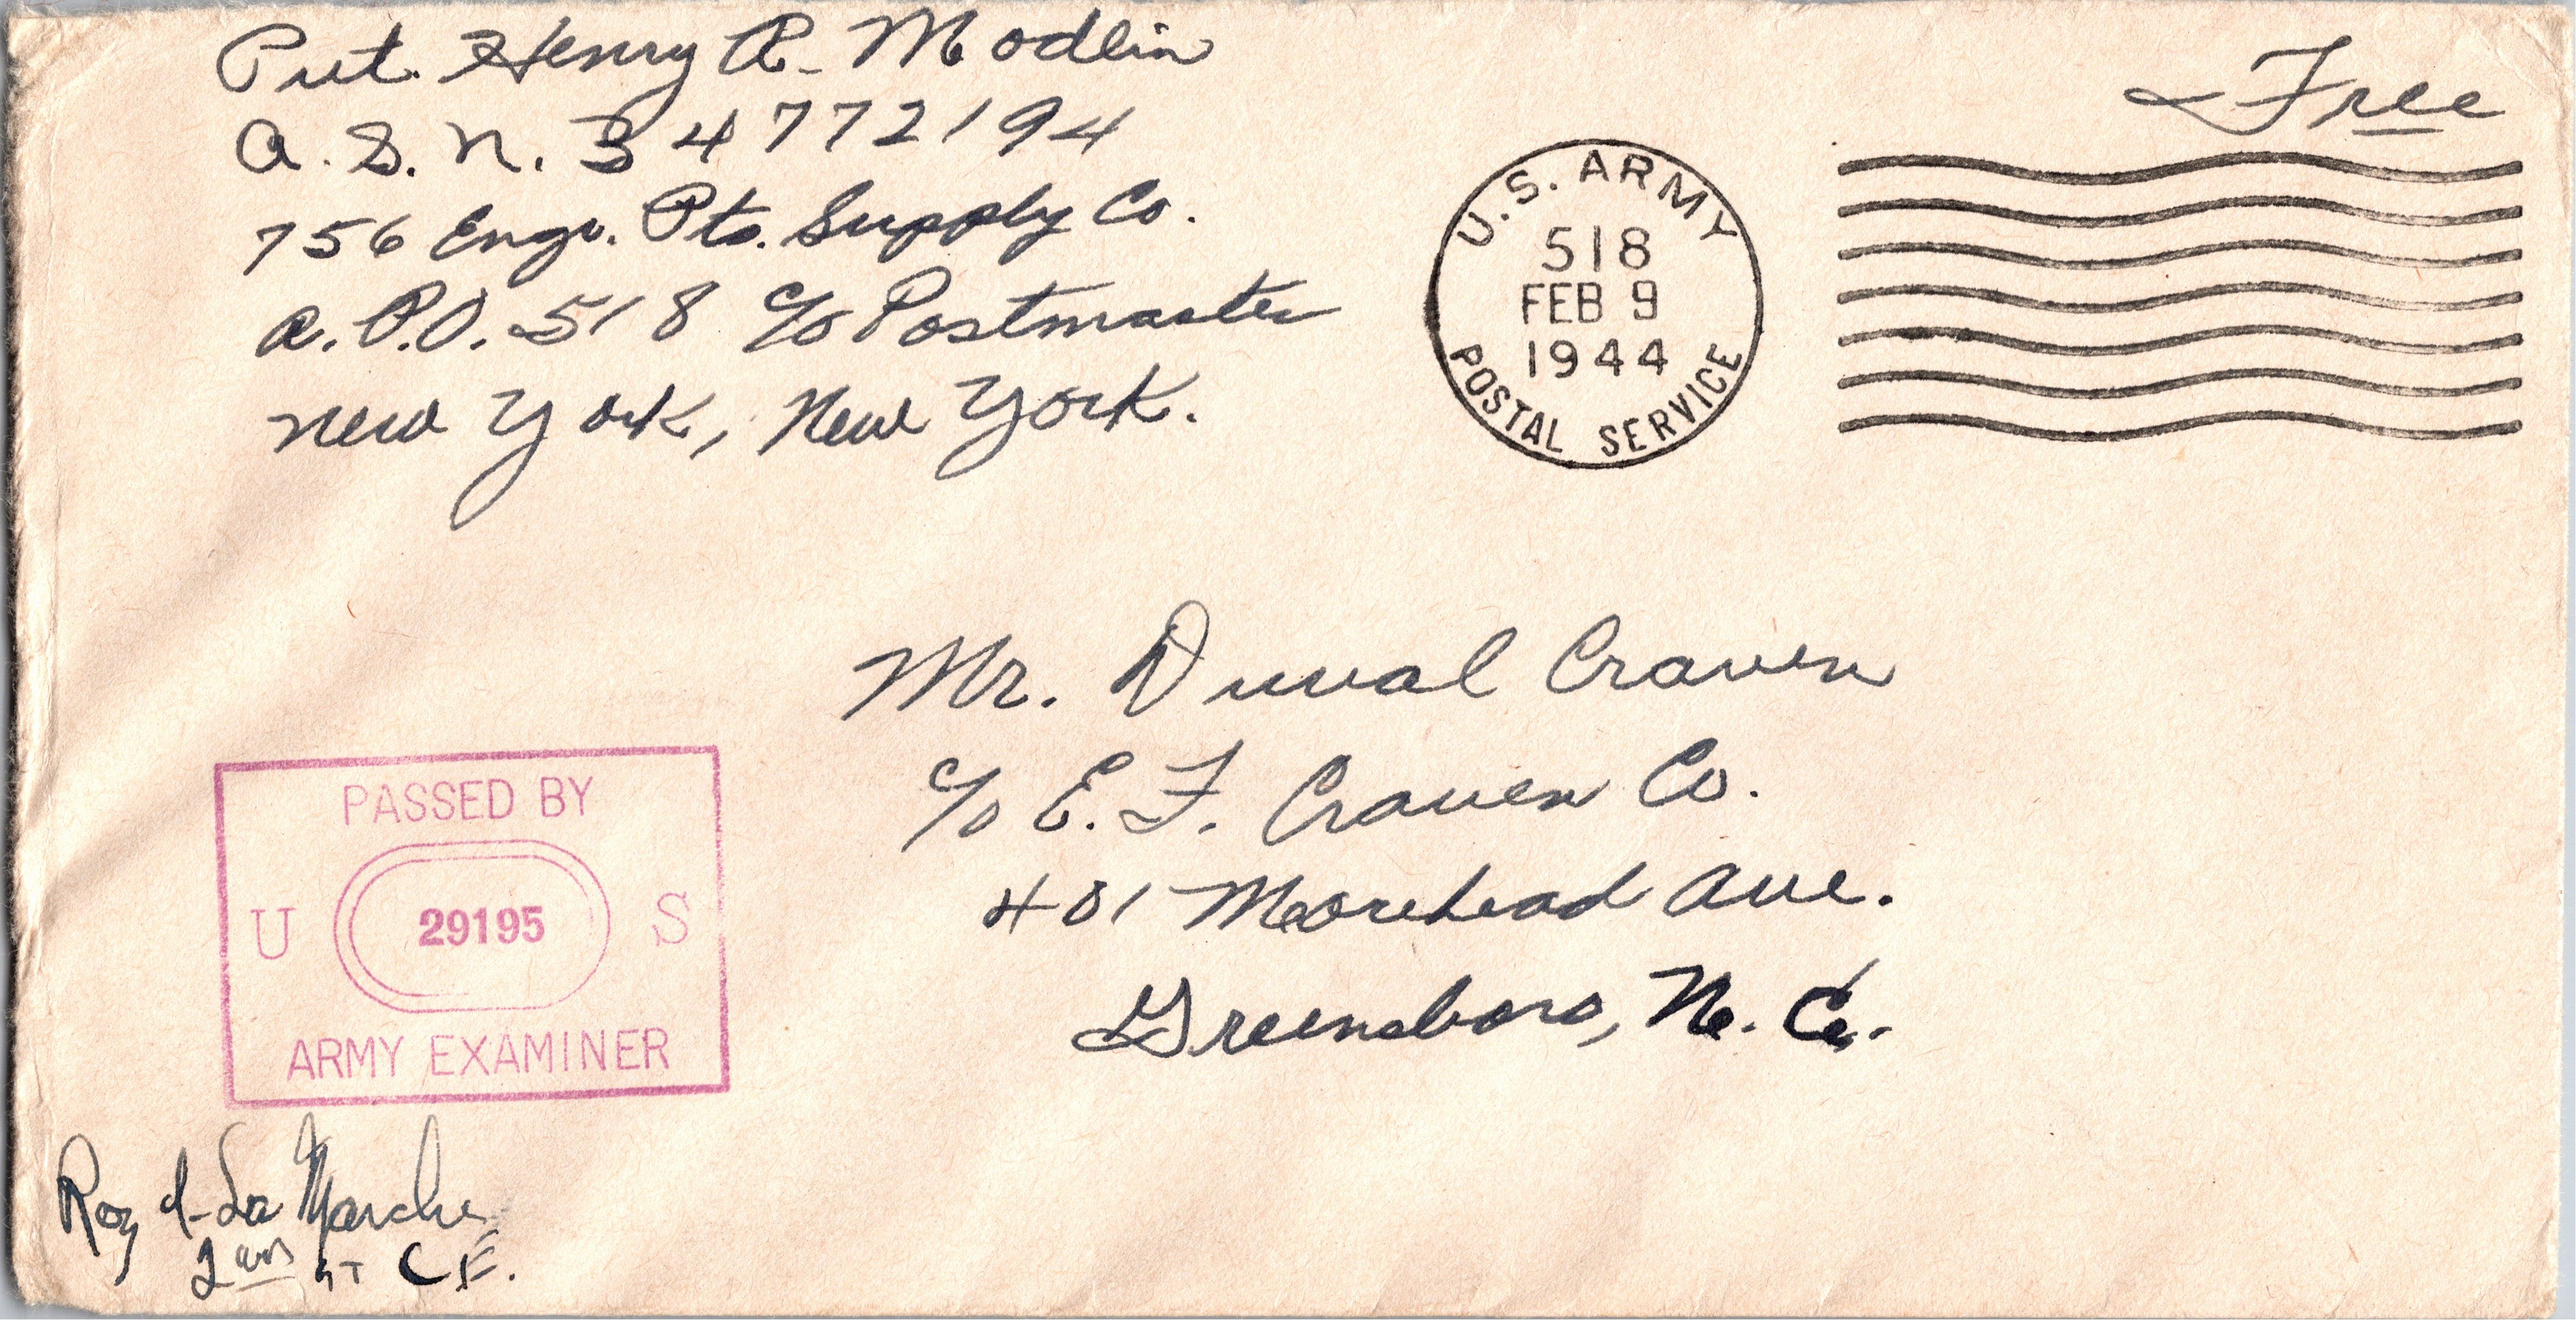 Pvt. Henry A. Modlin
A.S.N. 34772194
756 Engr. Pts. Supply Co.
A.P.O. 518 c/o Postmaster
New York, New York.
Free
U.S. ARMY
518
FEB 9
1944
POSTAL SERVICE
Mr. Duval Craven
c/o E. F. Craven Co.
401 Moorehead Ave.
Greensboro, N. C.
PASSED BY
U 29195 S
ARMY EXAMINER
Roy La Marche
2nd LT C.E.